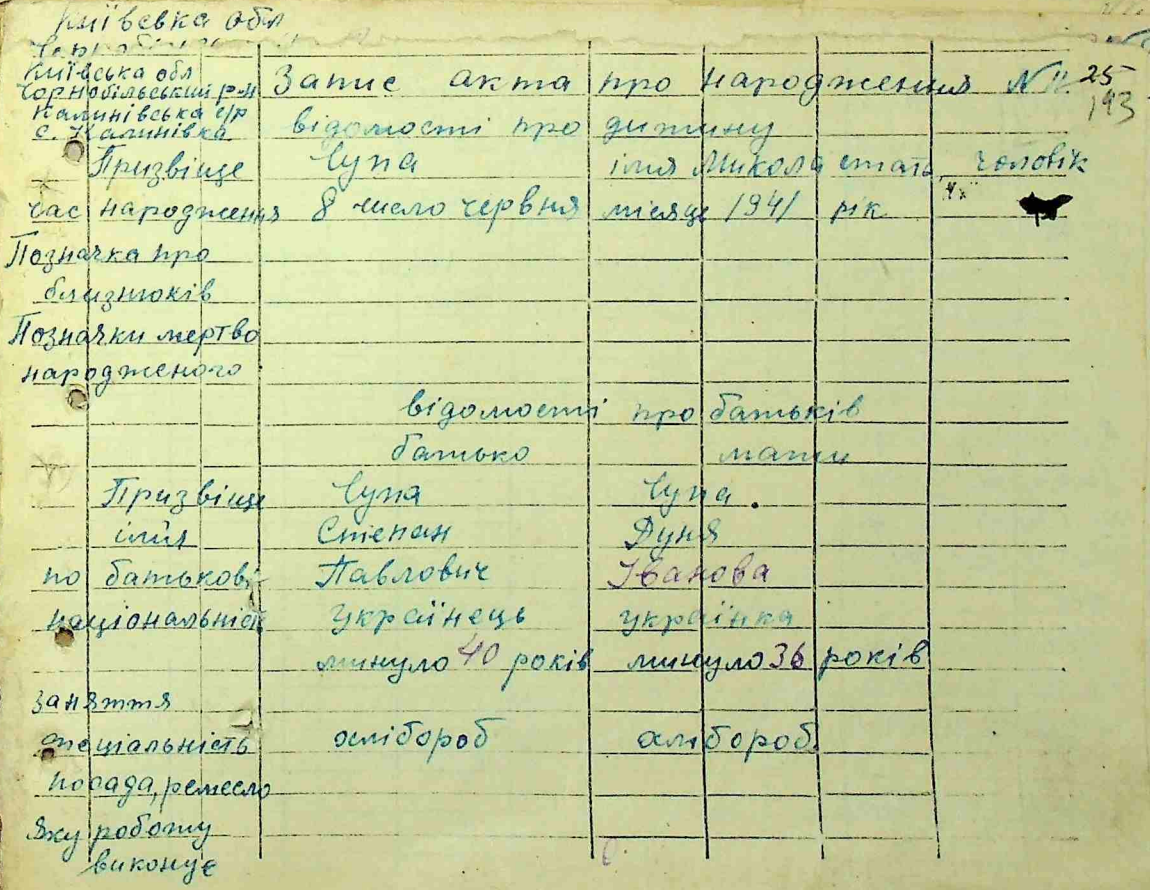 Київська обл
Київська обл
Чорнобильський р-н
Калинівська с/р
с. Калинівка
Запис акта про народження N 11. 25
193
відомості про дитину
Призвіще Чупа імя Микола стать чоловік
час народження 8 число червня місяця 1941 рік
Позначка про
близнюків
Позначки мертво
народженого
відомості про батьків
батько мати
Призвіще Чупа Чупа
імя Степан Дуня
по батькові Павлович Іванова
національність українець українка
минуло 40 років минуло 36 років
заняття
спеціальність хлібороб хлібороб
посада, ремесло
яку роботу
виконує